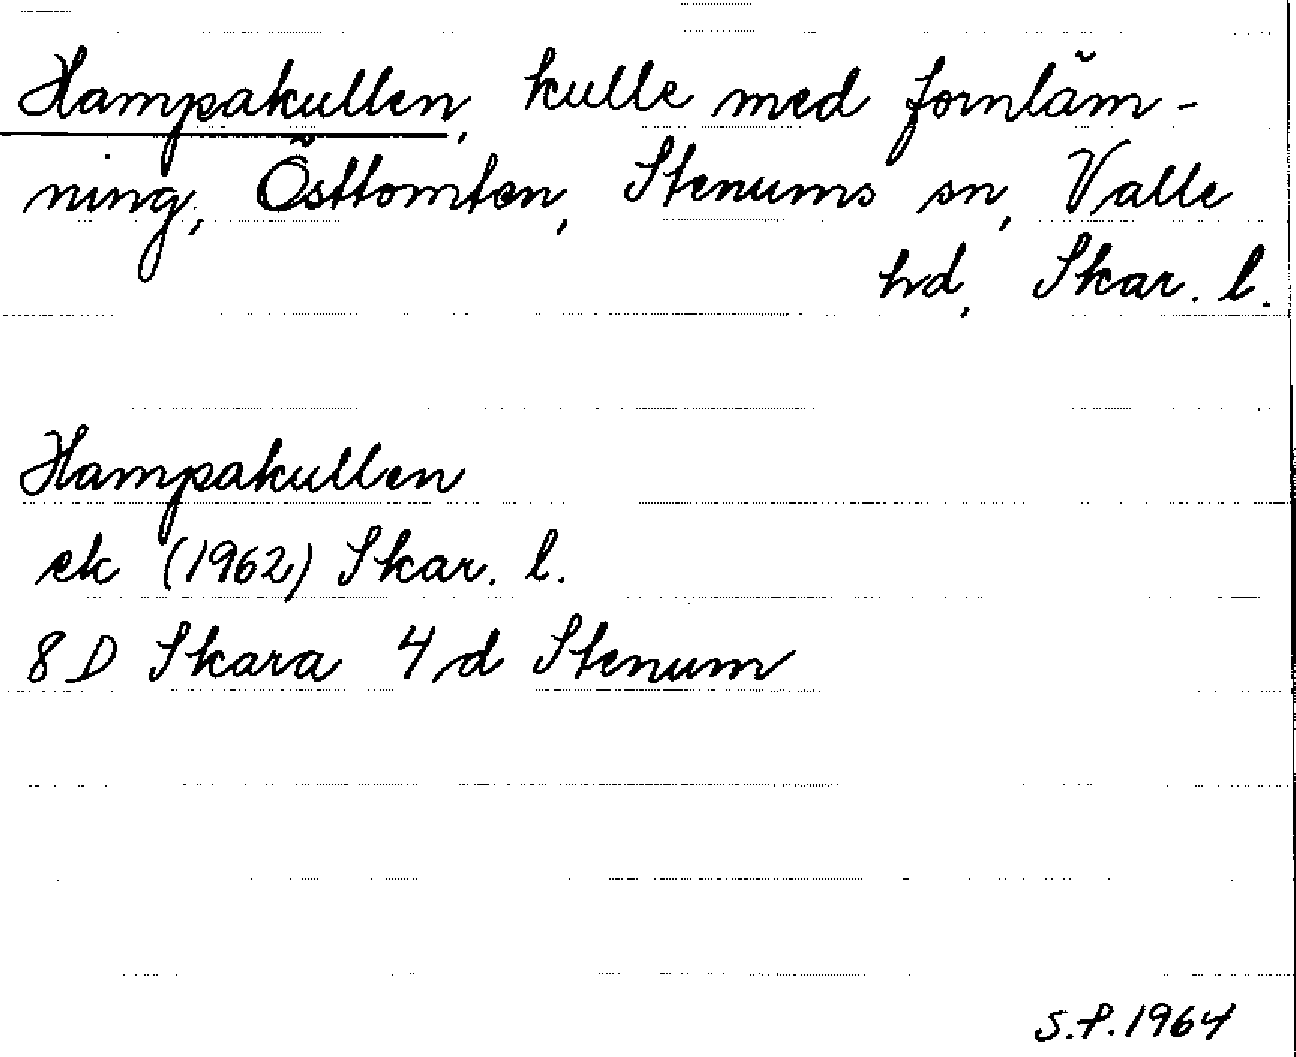 Hampakullen, kulle med fornläm-
ning, Östtomten, Stenums sn, Valle
hd, Skar. l.
Hampakullen
ek (1962) Skar. l.
8 D Skara 4 d Stenum
S.P. 1964